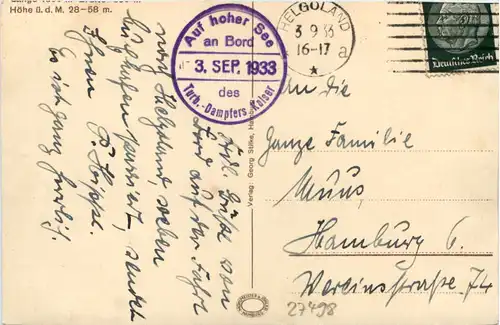 Höhe ü. d. M. 28-58 m.
Auf hoher See
an Bord
3. SEP. 1933
des
Turb.-Dampfers „Kaiser
HELGOLAND
3 9 33
16-17 a
Deutsches Reich
Verlag: Georg Stilke, Hamburg
Viele Grüße von
Bord auf der Fahrt
nach Helgoland, soeben
Cuxhaven passiert, sendet
Ihnen P. Hippe.
Es ist ganz herrlich.
An die
Ganze Familie
Muus,
Hamburg 6.
Vereinsstraße 74
27498